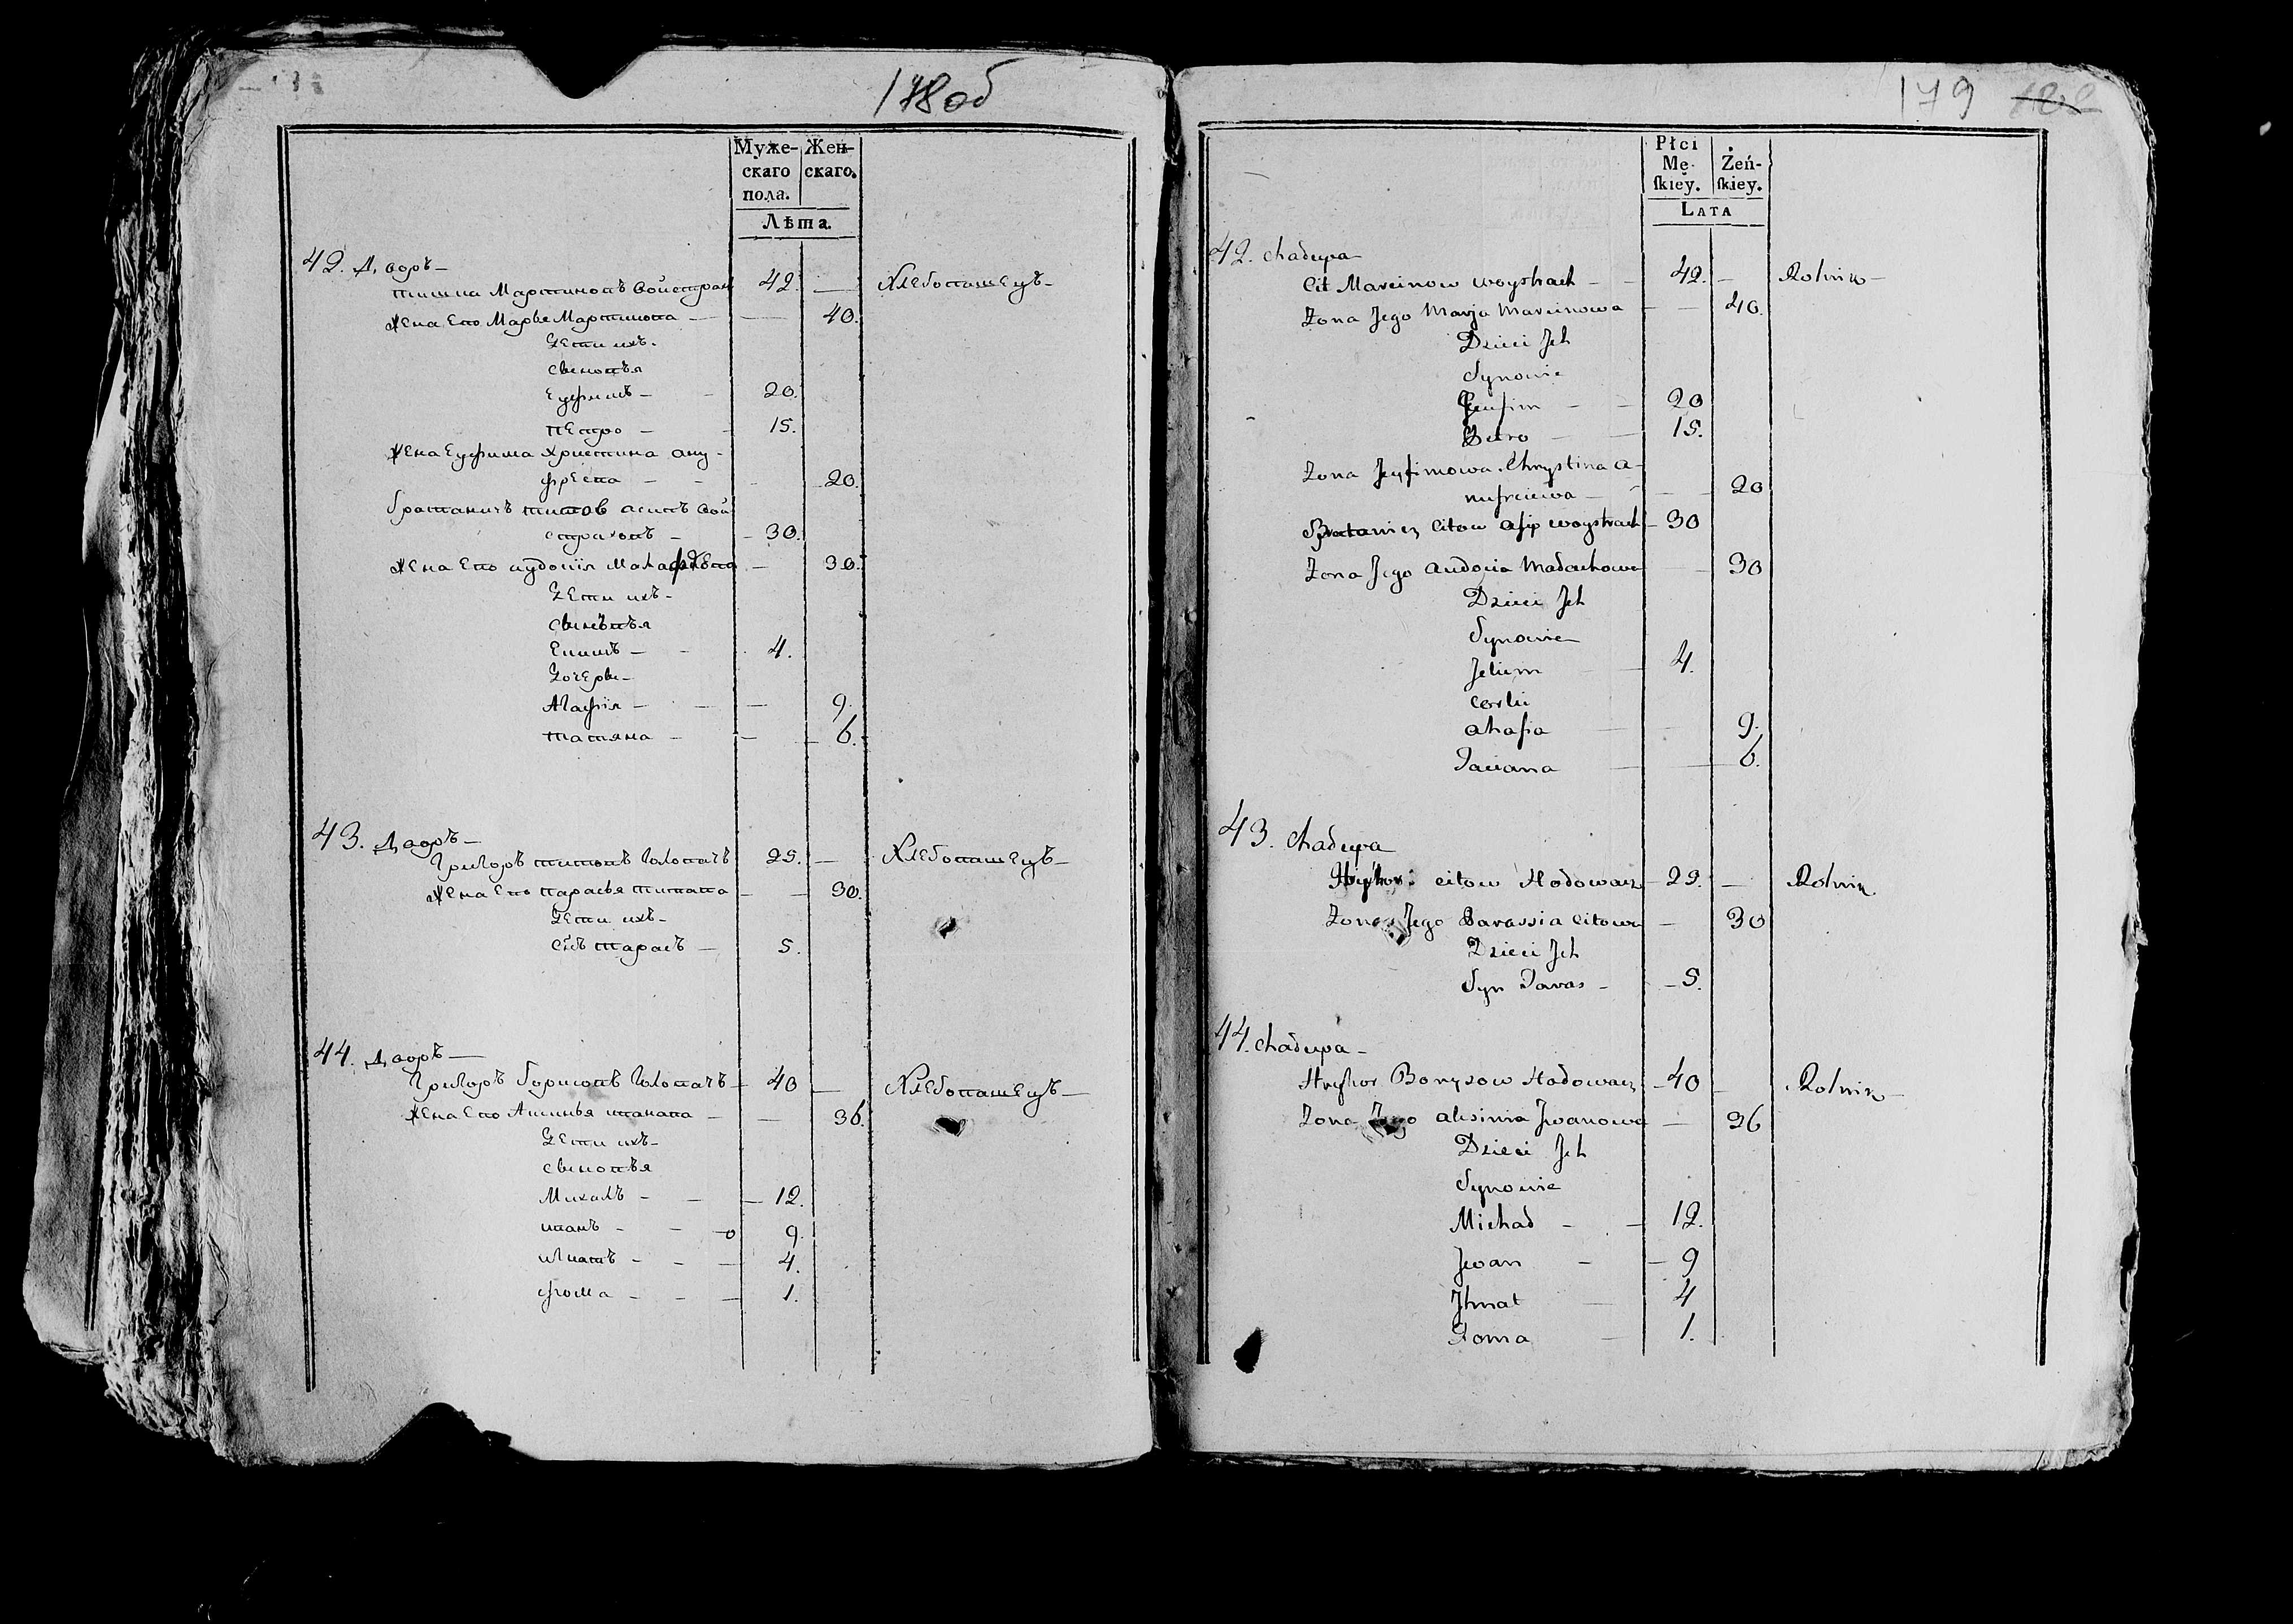 178об
Муже-
скаго
пола.
Жен-
скаго.
Лѣта.
42. Дворъ —
Мартиновъ 42. — Хлебопашецъ —
жена Его Марья Мартинова — — 40.
Дети ихъ.
сыновья
Еуфимъ — — 20.
петро — — 15.
жена Еуфима Христина ану-
фрева — — — 20.
братаничъ титовъ асипъ вой
страховъ — — 30.
жена Его аудоція — 30.
Дети ихъ —
Ехимъ — — 4.
Дочери —
Агафія — — — 9.
татяна — — — 6.
43. Дворъ —
Григоръ титовъ Головачъ 29. — Хлебопашецъ —
жена Его парасья титова — — 30.
Дети ихъ —
сынъ тарасъ — 5.
44. Дворъ —
Григоръ борисовъ Головачъ — 40 — Хлебопашецъ —
жена Его ивановa — — 36.
Дети ихъ —
сыновья
Михалъ — — — 12.
иванъ — — — 9.
игнатъ — — — 4.
фома — — — 1.
179
Płci
Mę-
ſkiey.
Żeń-
ſkiey.
LATA
42. Chałupa
Cit Marcinow Woystrach — — 42. — Rolnik —
Żona Jego Marja Marcinowa — — 40.
Dzieci Jch
Synowie
Jeufim — — 20
Petro — — 15.
Żona Jeufimowa Chrystina A-
nufreiewa — — — 20
Bratanicz Citow Asip Woystrach — 30
Żona Jego Audocia — — 30
Dzieci Jch
Synowie
Jchim — 4.
Corki
Ahafia — — 9.
Taciana — — 6.
43. Chałupa
Hryhor Citow Hołowacz — 29. — Rolnik
Żona Jego Parassia Citowa — 30
Dzieci Jch
Syn Taras — — 5.
44. Chałupa —
Hryhor Borysow Hołowacz — 40 — Rolnik —
Żona Jego Jwanowa — 36
Dzieci Jch
Synowie
Michał — — 12.
Jwan — — 9
Jhnat — 4
Foma — 1.